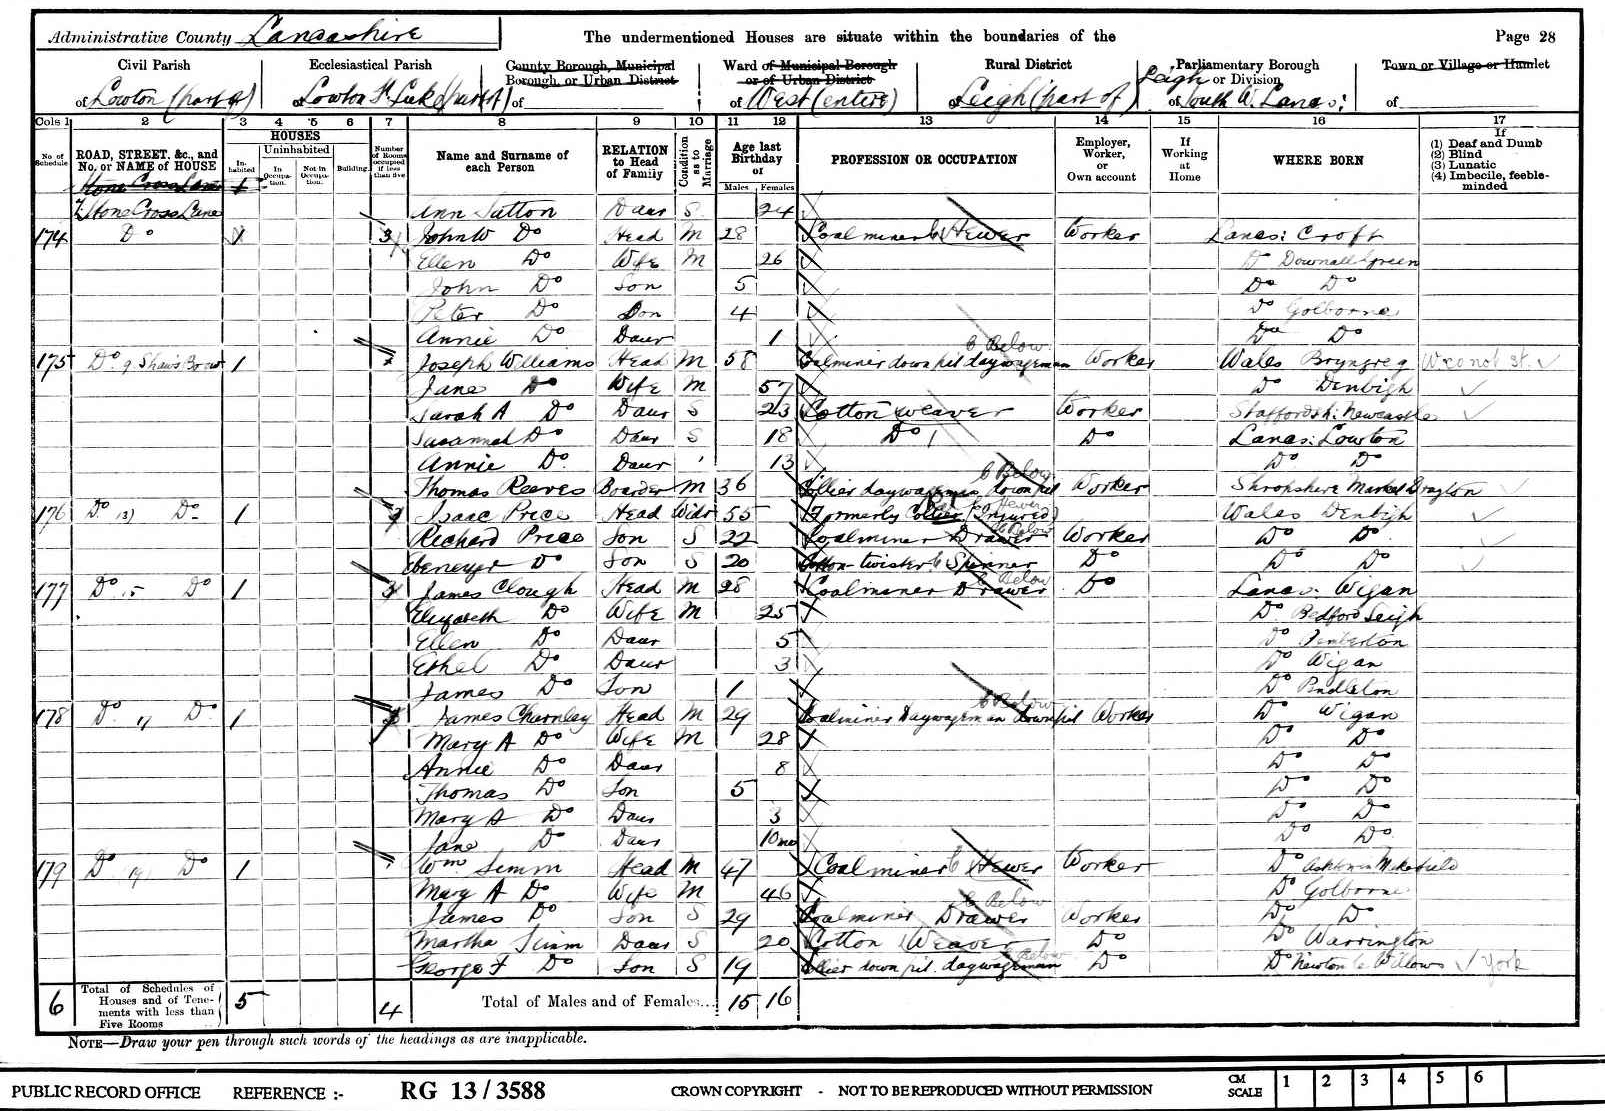 Administrative County Lancashire The undermentioned Houses are situate within the boundaries of the Page 28
Civil Parish Ecclesiastical Parish County Borough, Municipal Borough, or Urban District Ward of Municipal Borough or of Urban District Rural District Parliamentary Borough or Division Town or Village or Hamlet
of Lowton (part of) of Lowton St Lukes (part of) of of West (entire) of Leigh (part of) Leigh of South W. Lancs: of
Cols 1 2 3 4 5 6 7 8 9 10 11 12 13 14 15 16 17
No. of Schedule ROAD, STREET, &c., and No. or NAME of HOUSE HOUSES Inhabited Uninhabited In Occupation. Not in Occupation. Building. Number of Rooms occupied if less than five Name and Surname of each Person RELATION to Head of Family Condition as to Marriage Age last Birthday of Males Females PROFESSION OR OCCUPATION Employer, Worker, or Own account If Working at Home WHERE BORN If (1) Deaf and Dumb (2) Blind (3) Lunatic (4) Imbecile, feeble-minded
Stone Cross Lane 1
7 Stone Cross Lane Ann Sutton Daur S 24
174 Do 1 3 John W Do Head M 28 Coal miner Hewer Worker Lancs: Croft
Ellen Do Wife M 26 Do Downall Green
John Do Son 5 Do Do
Peter Do Son 4 Do Golborne
Annie Do Daur 1 Do Do
Below
175 Do 9 Shaws Brow 1 Joseph Williams Head M 58 Coalminer down pit daywageman Worker Wales
Jane Do Wife M 57 Do Denbigh
Sarah A Do Daur S 23 Cotton weaver Worker Staffordsh: Newcastle
Susannah Do Daur S 18 Do Do Lancs: Lowton
Annie Do Daur 13 Do Do
Below
Thomas Reeves Boarder M 36 Collier daywageman down pit Worker Shropshire Market Drayton
Hewer
176 Do 13 Do 1 Isaac Price Head Widr 55 Formerly Collier (Injured) Wales Denbigh
Below
Richard Price Son S 22 Coalminer Drawer Worker Do Do
Ebenezer Do Son S 20 Cotton twister Spinner Do Do Do
Below
177 Do 15 Do 1 3 James Clough Head M 28 Coalminer Drawer Do Lancs: Wigan
Elizabeth Do Wife M 25 Do Bedford Leigh
Ellen Do Daur 5 Do Pemberton
Ethel Do Daur 3 Do Wigan
James Do Son 1 Do Pndleton
Below
178 Do 17 Do 1 James Charnley Head M 29 Coalminer Daywageman down pit Worker Do Wigan
Mary A Do Wife M 28 Do Do
Annie Do Daur 8 Do Do
Thomas Do Son 5 Do Do
Mary A Do Daur 3 Do Do
Jane Do Daur 10 mo Do Do
179 Do 19 Do 1 Wm Simm Head M 47 Coalminer Hewer Worker Do
Mary A Do Wife M 46 Do Golborne
Below
James Do Son S 29 Coalminer Drawer Worker Do Do
Martha Simm Daur S 20 Cotton Weaver Do Do Warrington
Below
George F Do Son S 19 Collier down pit. daywageman Do Do Newton le Willows York
6 Total of Schedules of Houses and of Tenements with less than Five Rooms 5 4 Total of Males and of Females... 15 16
NOTE—Draw your pen through such words of the headings as are inapplicable.
PUBLIC RECORD OFFICE REFERENCE :- RG 13 / 3588 CROWN COPYRIGHT - NOT TO BE REPRODUCED WITHOUT PERMISSION CM SCALE 1 2 3 4 5 6